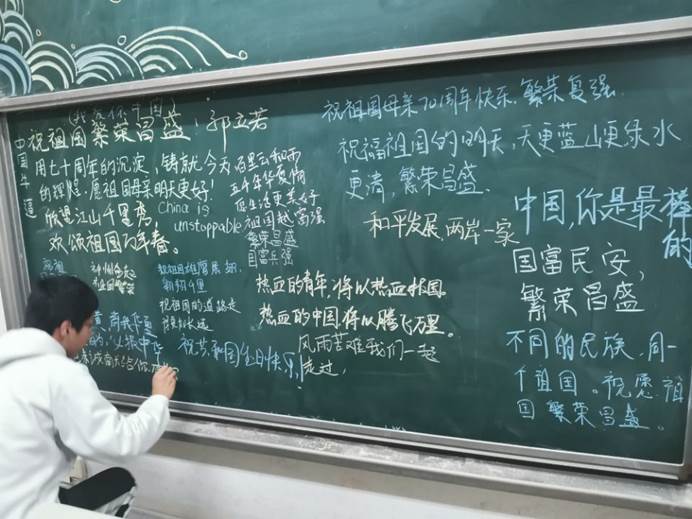 中国牛逼
祝祖国繁荣昌盛！郭立若
用七十周年的沉淀，铸就今天
的辉煌.愿祖国母亲明天更好！
欣迎江山千里秀，
欢颂祖国万年春。
China is
unstoppable
百里云和雨
五千年华夏情
愿生活更美好
祖国越富强
繁荣昌盛
国富兵强
祝祖国母亲70周年快乐.繁荣复强.
祝福祖国的明天,天更蓝山更绿水
更清，繁荣昌盛.
和平发展,两岸一家
中国,你是最棒的
国富民安，
繁荣昌盛
不同的民族,同一
个祖国。祝愿祖
国繁荣昌盛。
热血的青年,将以热血报国。
热血的中国将以腾飞万里。
风雨苦难我们一起
走过，
翱翔千里
祝祖国的道路走
得更长远